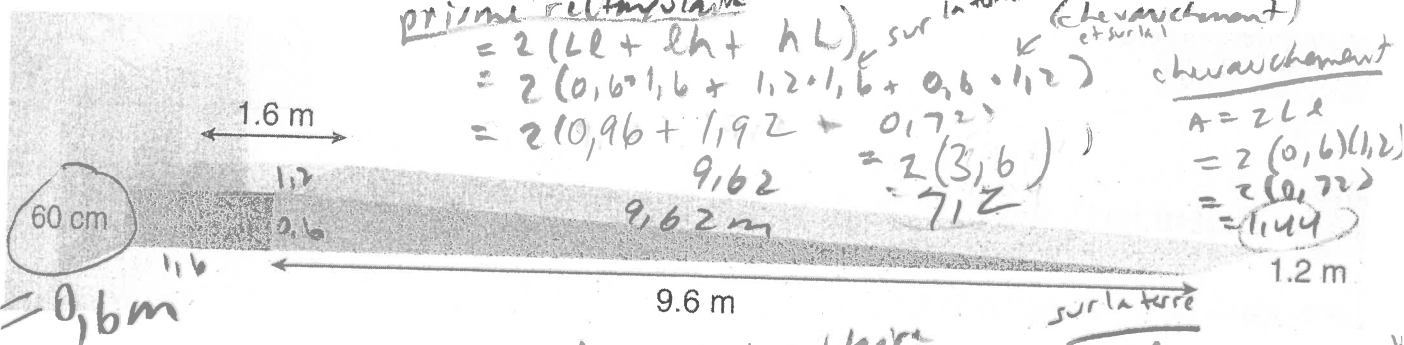 prisme rectangulaire
= 2 (Ll + lh + hL)
sur la terre
(chevauchement)
et sur la
= 2 (0,6•1,6 + 1,2•1,6 + 0,6•1,2)
= 2(0,96 + 1,92 + 0,72)
= 2(3,6)
= 7,2
chevauchement
A = 2Ll
= 2 (0,6)(1,2)
= 2(0,72)
= 1,44
1.6 m
1,2
9,62
60 cm
0,6
9,62m
1,6
= 0,6m
9.6 m
1.2 m
sur la terre